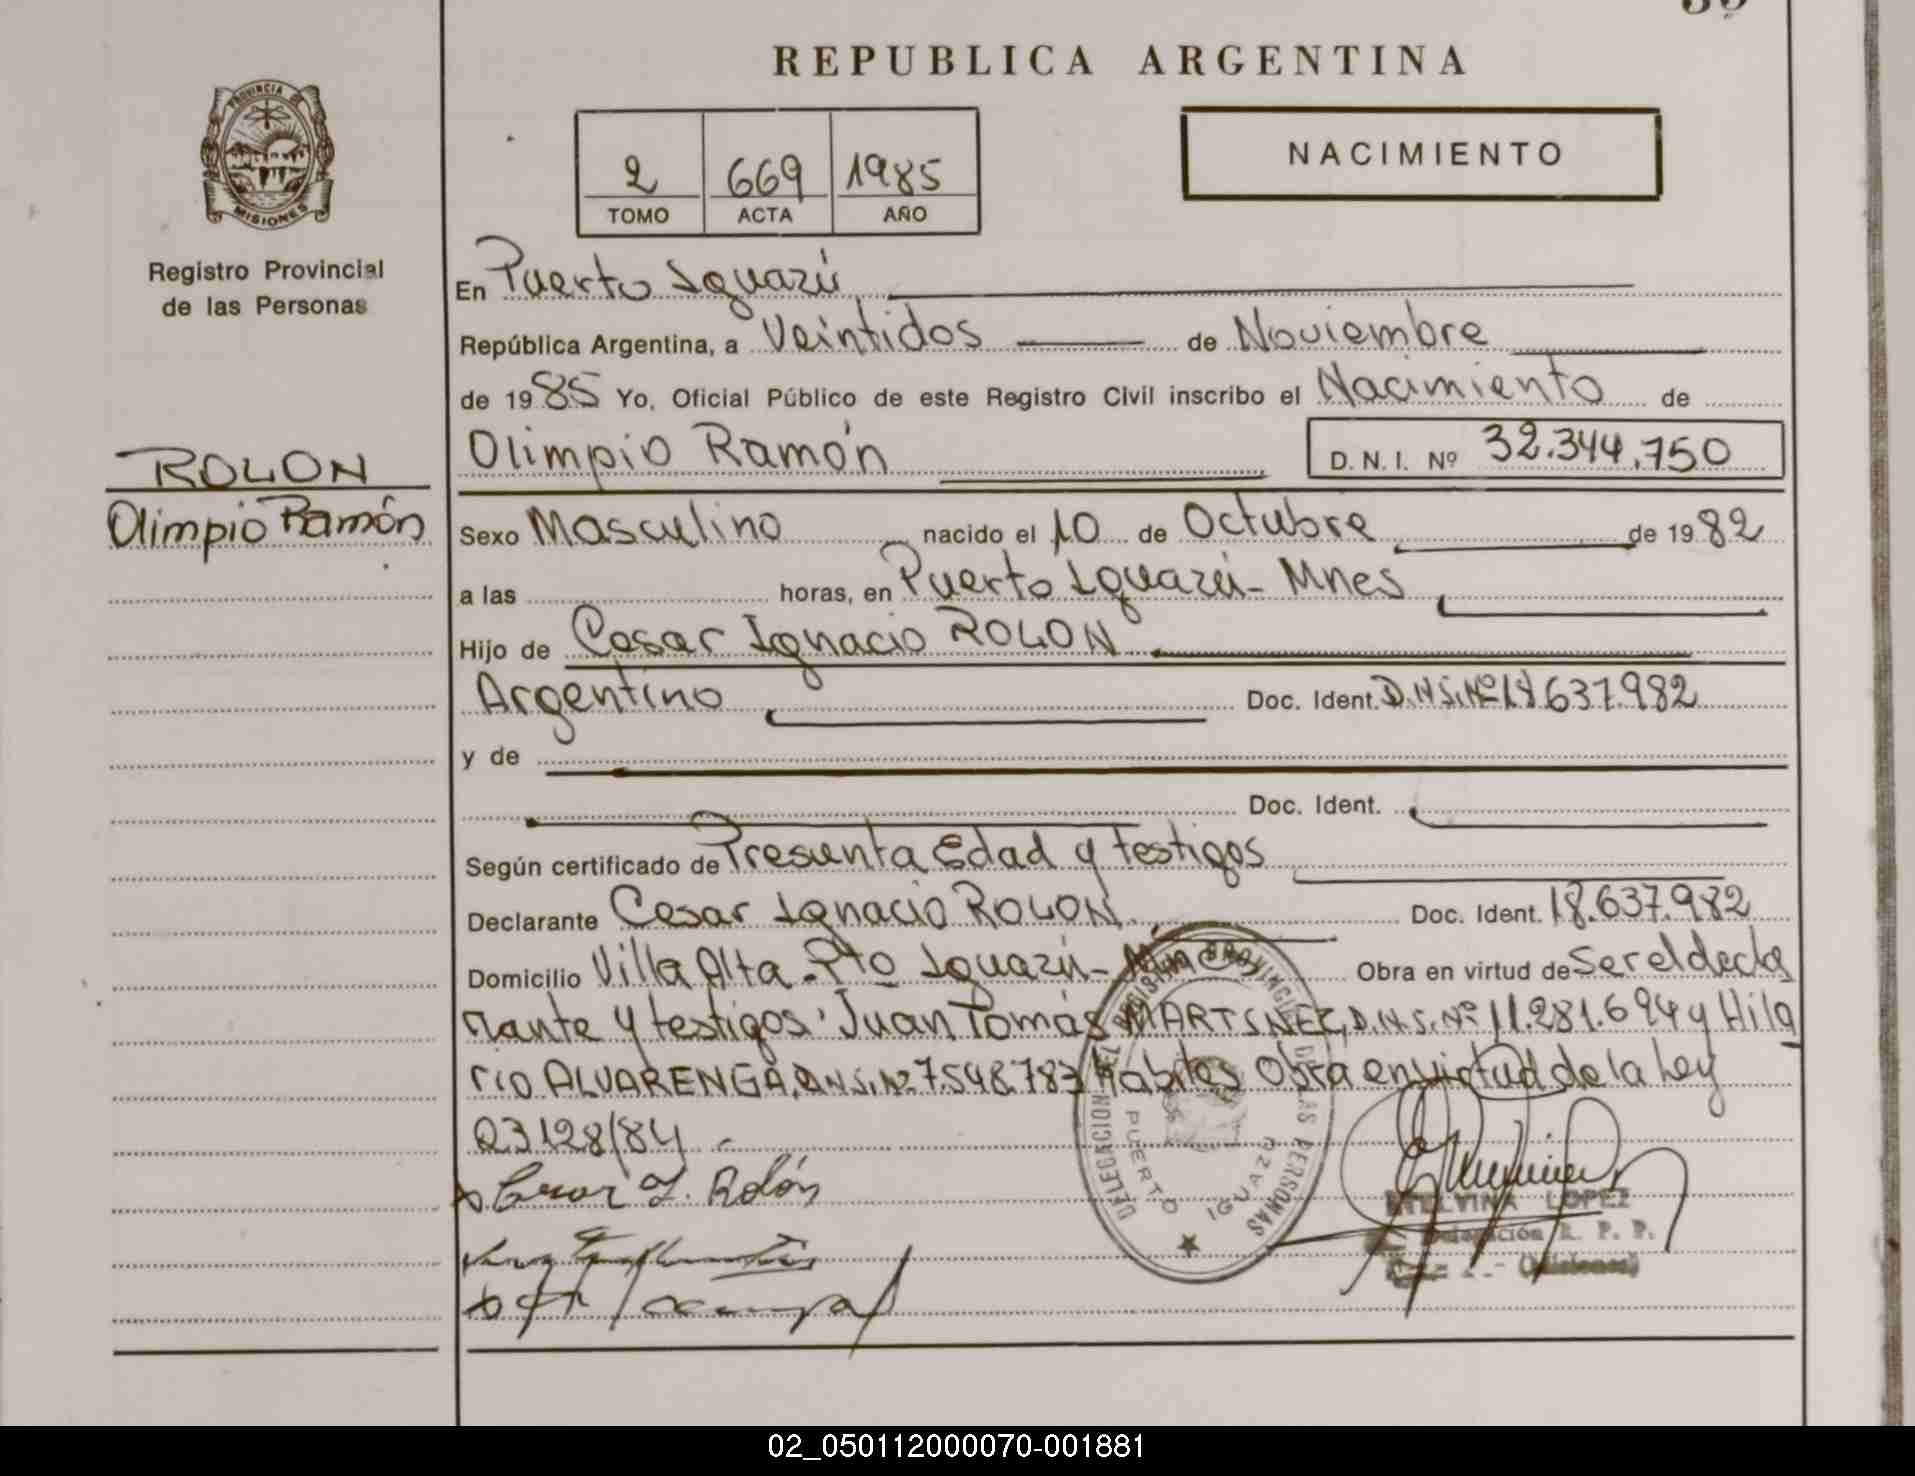 REPUBLICA ARGENTINA
PROVINCIA DE
MISIONES
Registro Provincial
de las Personas
2 669 1985
TOMO ACTA AÑO
NACIMIENTO
En Puerto Iguazú
República Argentina, a Veintidos de Noviembre
de 1985 Yo, Oficial Público de este Registro Civil inscribo el Nacimiento de
Olimpio Ramón D. N. I. Nº 32.344.750
ROLON
Olimpio Ramón
Sexo Masculino nacido el 10 de Octubre de 1982
a las horas, en Puerto Iguazú - Mnes
Hijo de Cesar Ignacio ROLON
Argentino Doc. Ident. D.N.I. Nº 18.637.982
y de
Doc. Ident.
Según certificado de Presunta Edad y testigos
Declarante Cesar Ignacio ROLON Doc. Ident. 18.637.982
Domicilio Villa Alta - Pto Iguazú - Mnes Obra en virtud de Ser el decla
rante y testigos: Juan Tomás MARTINEZ, D.N.I. Nº 11.281.694 y Hila
rio ALVARENGA, D.N.I. Nº 7.548.783 Habiles Obra en virtud de la Ley
23128/84
Cesar I. Rolón
DELEGACION DEL REGISTRO PROVINCIAL DE LAS PERSONAS
PUERTO IGUAZU
ETELVINA LOPEZ
Delegación R. P. P.
(Misiones)
02_050112000070-001881